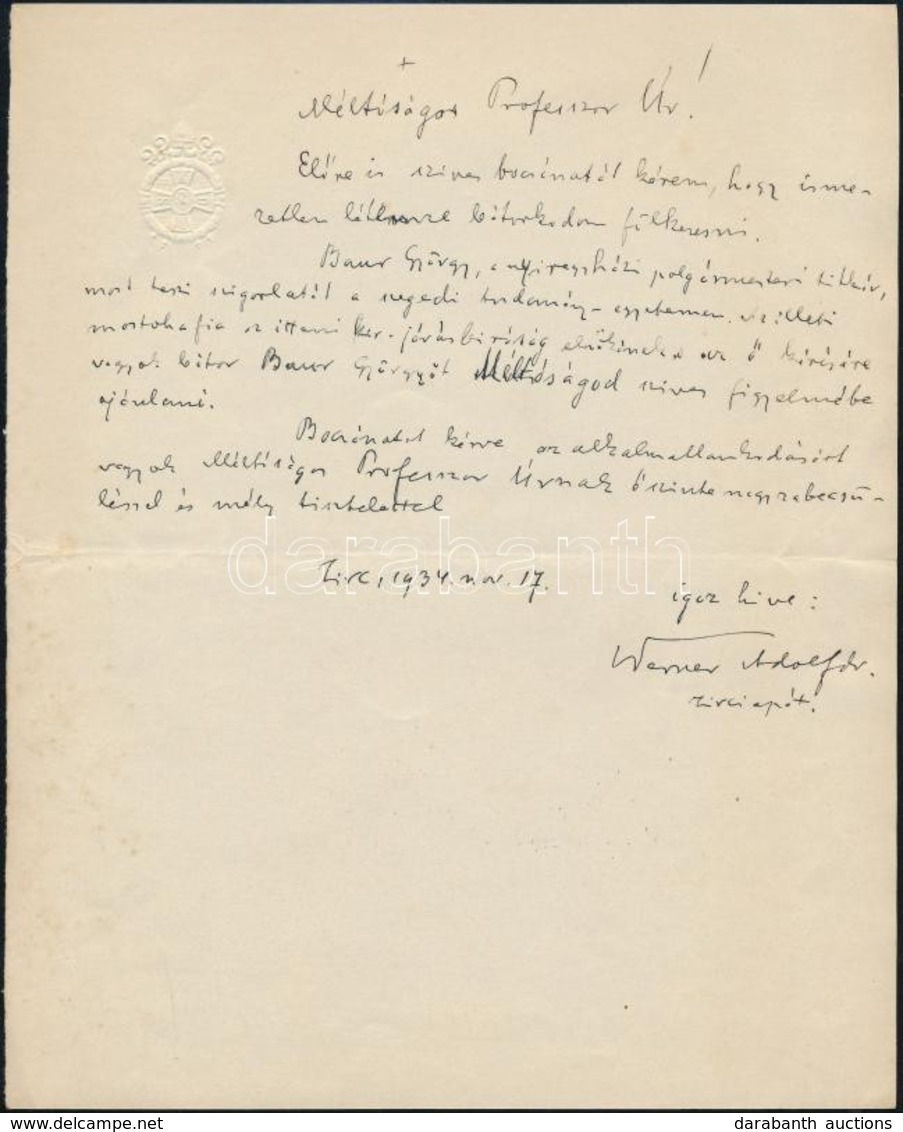 +
Méltóságos Professor Úr!
Előre is szives bocsánatát kérem, hogy isme-
retlen létemre bátorkodom fölkeresni.
Baur György, a nyiregyházi polgármesteri titkár,
most teszi szigorlatát a szegedi tudomány-egyetemen. Az illető
mostohafia az ittani kir. járásbiróság elnökének s az ő kérésére
vagyok bátor Baur Györgyöt Méltóságod szives figyelmébe
ajánlani.
Bocsánatot kérve az alkalmatlankodásért
vagyok Méltóságos Professzor Úrnak őszinte nagyrabecsü-
léssel és mély tisztelettel
darabanth
Zirc, 1934. nov. 17.
igaz hive:
Werner Adolf dr.
zirci apát.
darabanth auctions